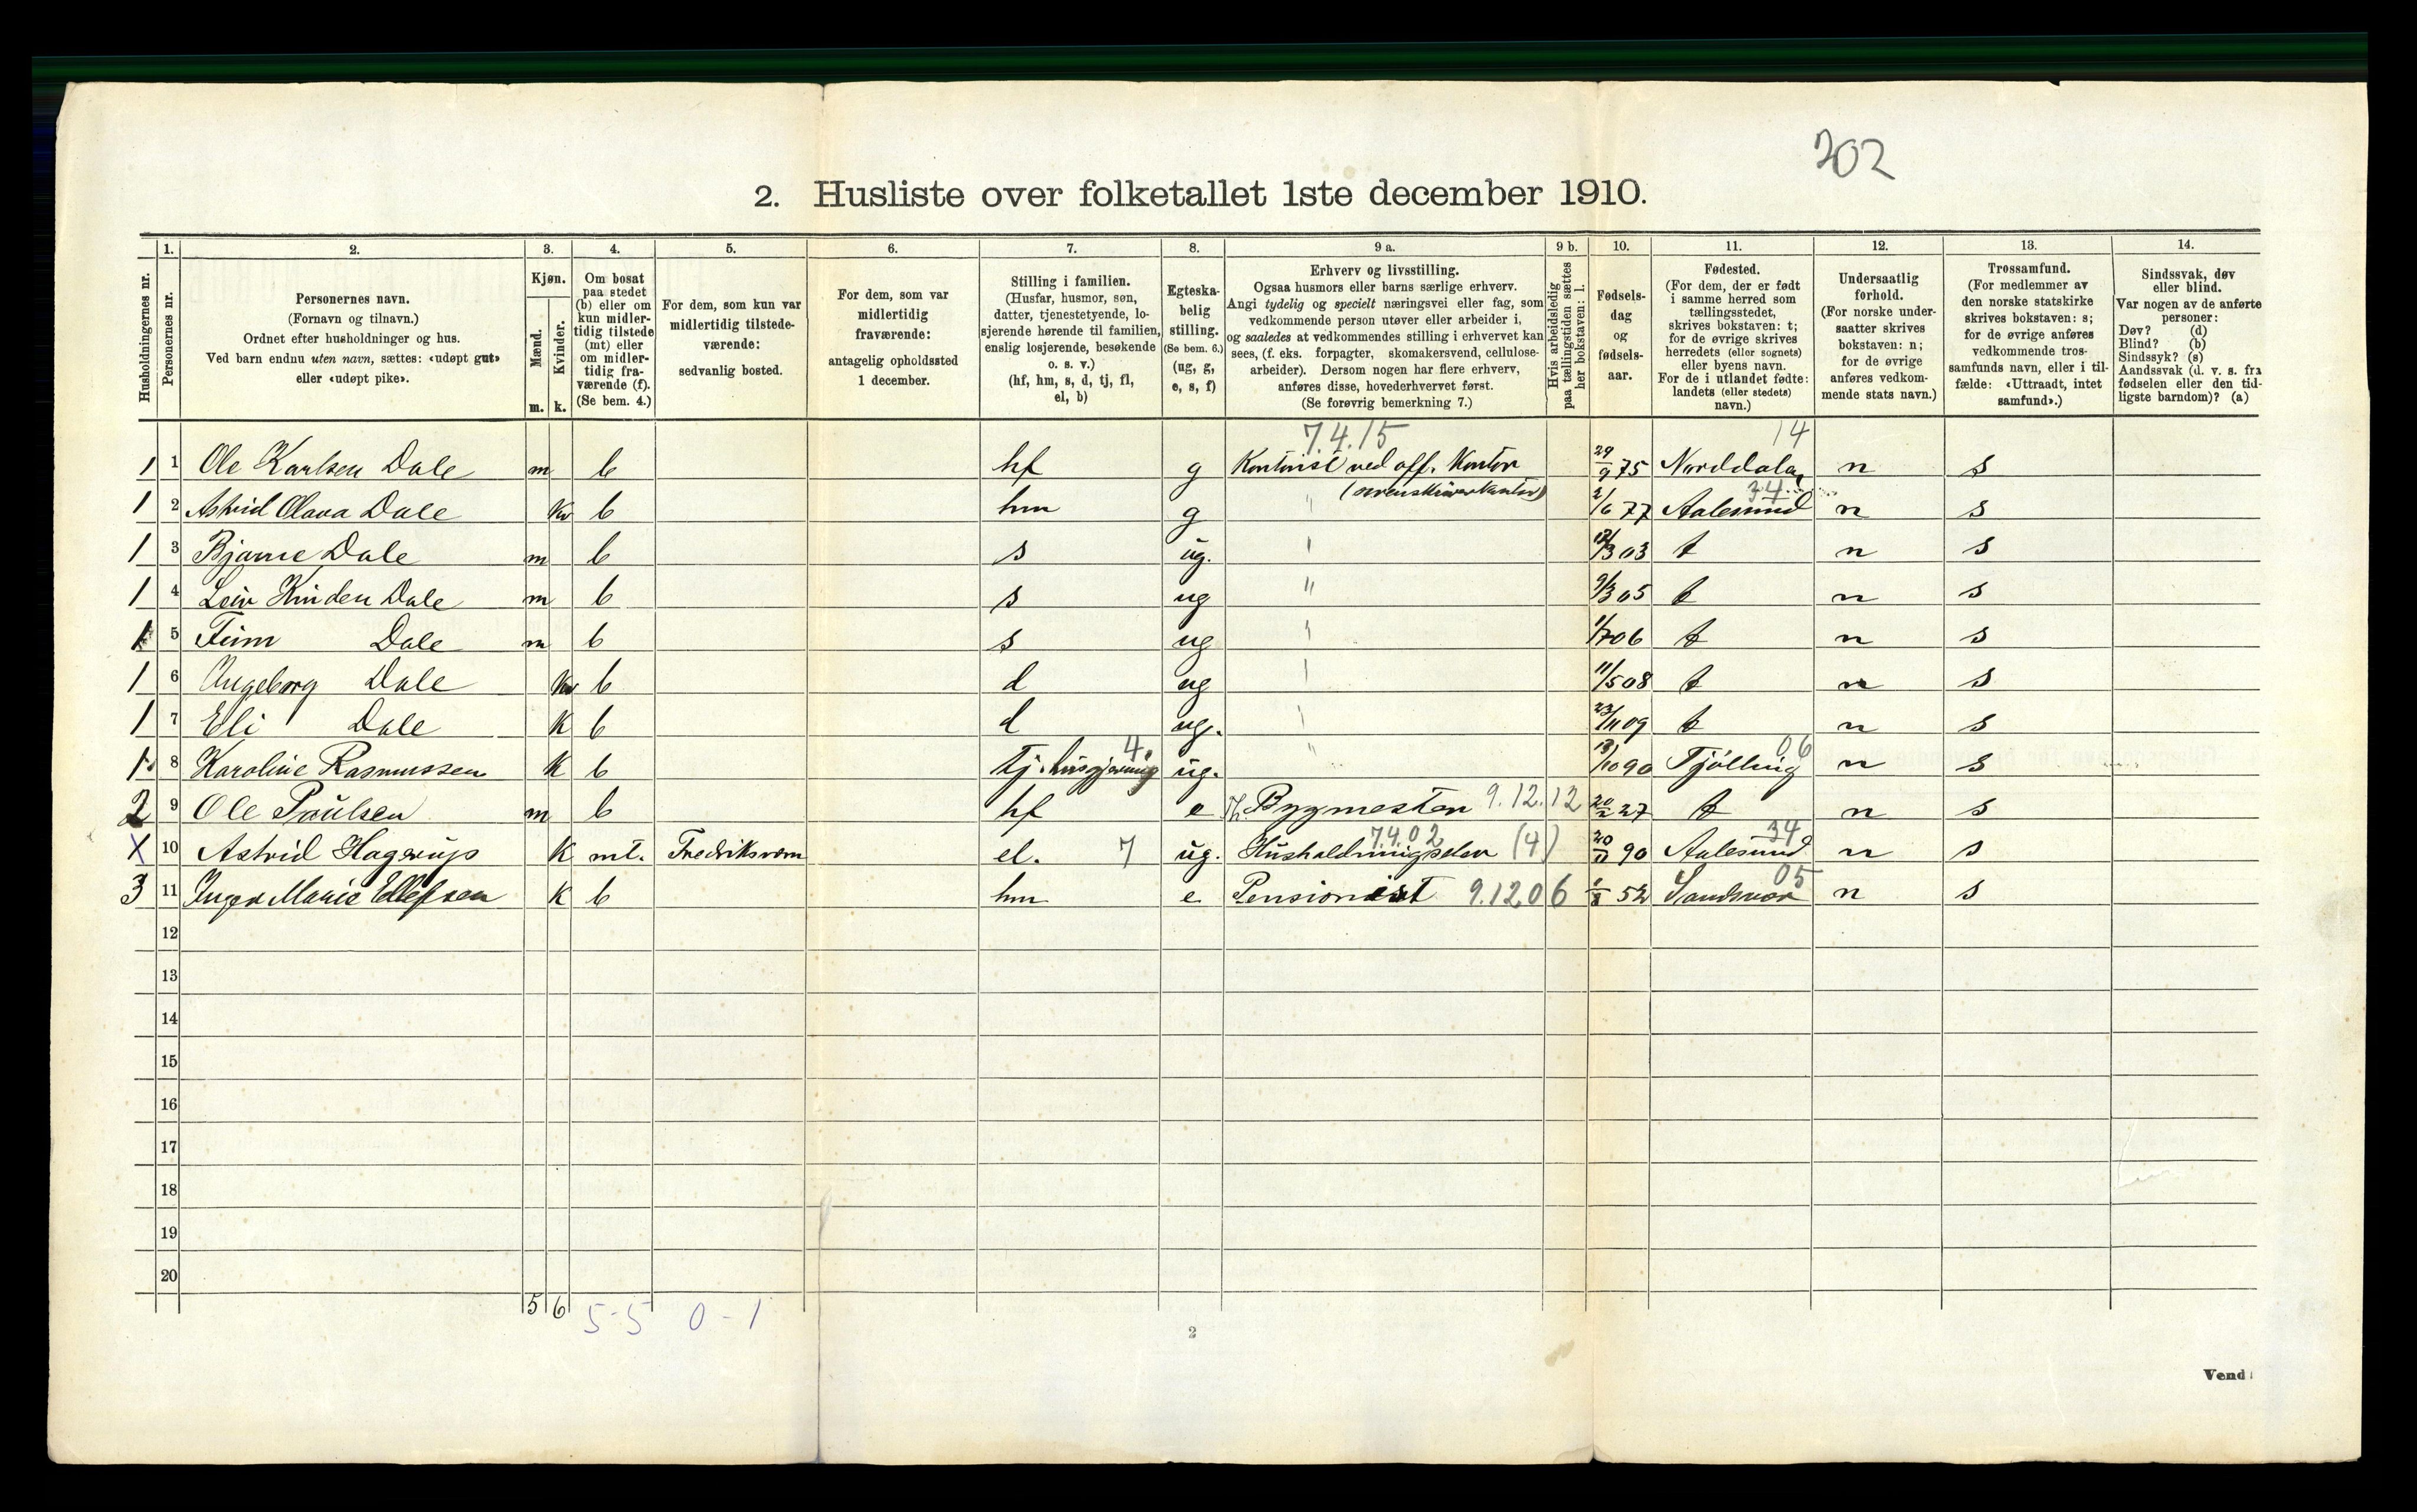 202
2. Husliste over folketallet 1ste december 1910.
Husholdningernes nr.
1. Personernes nr.
2. Personernes navn. (Fornavn og tilnavn.) Ordnet efter husholdninger og hus. Ved barn endnu uten navn, sættes: «udøpt gut» eller «udøpt pike».
3. Kjøn. Mænd. m. Kvinder. k.
4. Om bosat paa stedet (b) eller om kun midlertidig tilstede (mt) eller om midlertidig fraværende (f). (Se bem. 4.)
5. For dem, som kun var midlertidig tilstedeværende: sedvanlig bosted.
6. For dem, som var midlertidig fraværende: antagelig opholdssted 1 december.
7. Stilling i familien. (Husfar, husmor, søn, datter, tjenestetyende, losjerende hørende til familien, enslig losjerende, besøkende o. s. v.) (hf, hm, s, d, tj, fl, el, b)
8. Egteskabelig stilling. (Se bem. 6.) (ug, g, e, s, f)
9 a. Erhverv og livsstilling. Ogsaa husmors eller barns særlige erhverv. Angi tydelig og specielt næringsvei eller fag, som vedkommende person utøver eller arbeider i, og saaledes at vedkommendes stilling i erhvervet kan sees, (f. eks. forpagter, skomakersvend, cellulosearbeider). Dersom nogen har flere erhverv, anføres disse, hovederhvervet først. (Se forøvrig bemerkning 7.)
9 b. Hvis arbeidsledig paa tællingstiden sættes her bokstaven: l.
10. Fødselsdag og fødselsaar.
11. Fødested. (For dem, der er født i samme herred som tællingsstedet, skrives bokstaven: t; for de øvrige skrives herredets (eller sognets) eller byens navn. For de i utlandet fødte: landets (eller stedets) navn.)
12. Undersaatlig forhold. (For norske undersaatter skrives bokstaven: n; for de øvrige anføres vedkommende stats navn.)
13. Trossamfund. (For medlemmer av den norske statskirke skrives bokstaven: s; for de øvrige anføres vedkommende trossamfunds navn, eller i tilfælde: «Uttraadt, intet samfund».)
14. Sindssvak, døv eller blind. Var nogen av de anførte personer: Døv? (d) Blind? (b) Sindssyk? (s) Aandssvak (d. v. s. fra fødselen eller den tidligste barndom)? (a)
7.4.15 14
1 1 Ole Karlsen Dale m b hf g Kontorist ved off. Kontor 29/9 75 Norddalen n s
(sorenskriverkontor) 34
1 2 Astrid Olava Dale kv b hm g " 2/6 77 Aalesund n s
1 3 Bjarne Dale m b s ug. " 03 t n s
1 4 Leiv Hinden Dale m b s ug " 9/3 05 t n s
1 5 Finn Dale m b s ug " 1/7 06 t n s
1 6 Ingeborg Dale kv b d ug " 11/5 08 t n s
1 7 Eli Dale k b d ug. " 23/11 09 t n s
4. 06
1 8 Karoline Rasmussen k b tj. husgjerning ug. " /10 90 Tjølling n s
2 9 Ole Paulsen m b hf e Bygmester 9.12.12 20/2 27 t n s
7.4.02 34
x 10 Astrid Hagerup k mt. Fredriksværn el. 7 ug. Husholdningselev (4) 20/11 90 Aalesund n s
05
3 11 Inger Marie Ellefsen k b hm e Pensionist 9.12.06 52 Sandsvær n s
12
13
14
15
16
17
18
19
20
5 6 5-5 0-1
2
Vend